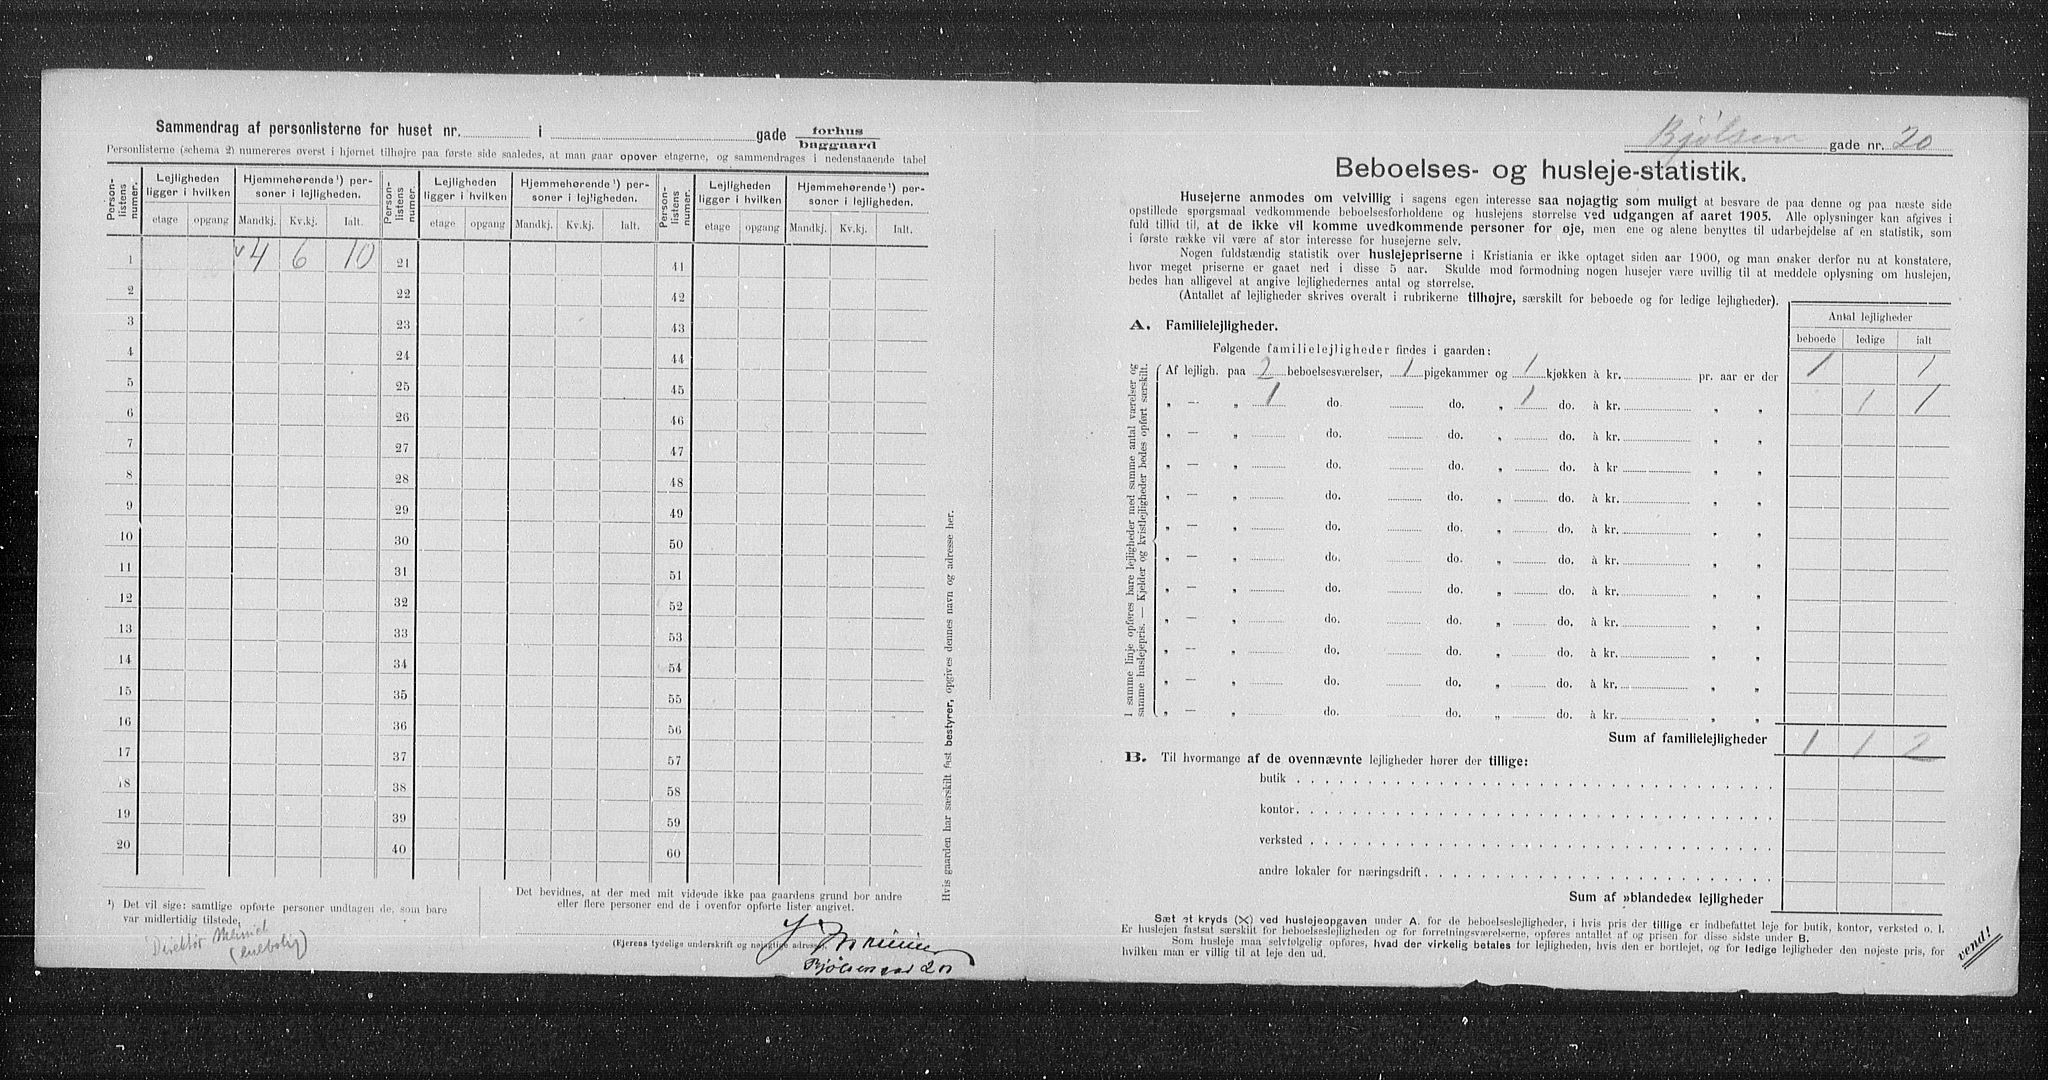 Sammendrag af personlisterne for huset nr. i gade forhus
baggaard
Personlisterne (schema 2) numereres øverst i hjørnet tilhøjre paa første side saaledes, at man gaar opover etagerne, og sammendrages i nedenstaaende tabel
Person-listens numer. Lejligheden ligger i hvilken Hjemmehørende¹) personer i lejligheden. Person-listens numer. Lejligheden ligger i hvilken Hjemmehørende¹) personer i lejligheden. Person-listens numer. Lejligheden ligger i hvilken Hjemmehørende¹) personer i lejligheden.
etage opgang Mandkj. Kv.kj. Ialt. etage opgang Mandkj. Kv.kj. Ialt. etage opgang Mandkj. Kv.kj. Ialt.
1 v 4 6 10 21 41
2 22 42
3 23 43
4 24 44
5 25 45
6 26 46
7 27 47
8 28 48
9 29 49
10 30 50
11 31 51
12 32 52
13 33 53
14 34 54
15 35 55
16 36 56
17 37 57
18 38 58
19 39 59
20 40 60
¹) Det vil sige: samtlige opførte personer undtagen de, som bare
var midlertidig tilstede.
Direktør
(enebolig)
Det bevidnes, at der med mit vidende ikke paa gaardens grund bor andre
eller flere personer end de i ovenfor opførte lister angivet.
(Ejerens tydelige underskrift og nøjagtige adresse).
Bjølsengad 20
Hvis gaarden har særskilt fast bestyrer, opgives dennes navn og adresse her.
Bjølsen gade nr. 20
Beboelses- og husleje-statistik.
Husejerne anmodes om velvillig i sagens egen interesse saa nøjagtig som muligt at besvare de paa denne og paa næste side
opstillede spørgsmaal vedkommende beboelsesforholdene og huslejens størrelse ved udgangen af aaret 1905. Alle oplysninger kan afgives i
fuld tillid til, at de ikke vil komme uvedkommende personer for øje, men ene og alene benyttes til udarbejdelse af en statistik, som
i første række vil være af stor interesse for husejerne selv.
Nogen fuldstændig statistik over huslejepriserne i Kristiania er ikke optaget siden aar 1900, og man ønsker derfor nu at konstatere,
hvor meget priserne er gaaet ned i disse 5 aar. Skulde mod formodning nogen husejer være uvillig til at meddele oplysning om huslejen,
bedes han alligevel at angive lejlighedernes antal og størrelse.
(Antallet af lejligheder skrives overalt i rubrikerne tilhøjre, særskilt for beboede og for ledige lejligheder).
Antal lejligheder
beboede ledige ialt
A. Familielejligheder.
Følgende familielejligheder findes i gaarden:
I samme linje opføres bare lejligheder med samme antal værelser og
samme huslejepris. — Kjelder og kvistlejligheder bedes opført særskilt.
Af lejligh. paa 2 beboelsesværelser, 1 pigekammer og 1 kjøkken à kr. pr. aar er der 1 1
„ — „ 1 do. do. „ 1 do. à kr. „ „ 1 1
„ — „ do. do. „ do. à kr. „ „
„ — „ do. do. „ do. à kr „ „
„ — „ do. do. „ do. à kr. „ „
„ — „ do. do. „ do. à kr. „ „
„ — „ do. do. „ do. à kr. „ „
„ — „ do. do. „ do. à kr. „ „
„ — „ do. do. „ do. à kr. „ „
„ — „ do. do. „ do. à kr. „ „
„ — „ do. do. „ do. à kr. „ „
„ — „ do. do. „ do. à kr. „ „
Sum af familielejligheder 1 1 2
B. Til hvormange af de ovennævnte lejligheder hører der tillige:
butik
kontor
verksted
andre lokaler for næringsdrift
Sum af »blandede« lejligheder
Sæt et kryds (X) ved huslejeopgaven under A. for de beboelseslejligheder, i hvis pris der tillige er indbefattet leje for butik, kontor, verksted o. l.
Er huslejen fastsat særskilt for beboelseslejligheden og for forretningsværelserne, opføres antallet af og prisen for disse sidste under B.
Som husleje maa selvfølgelig opføres, hvad der virkelig betales for lejligheden, hvis den er bortlejet, og for ledige lejligheder den nøjeste pris, for
hvilken man er villig til at leje den ud.
vend!